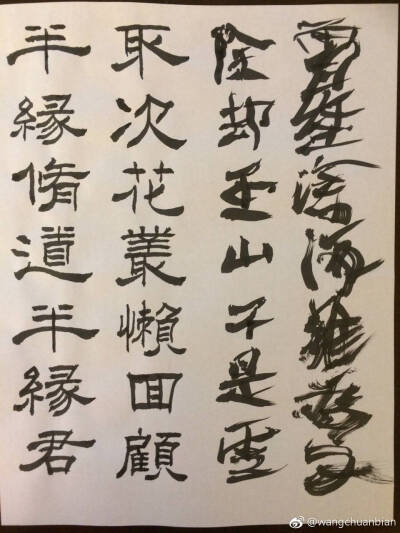 曾經滄海難為水
除却巫山不是雲
取次花叢懶回顧
半緣脩道半緣君
@wangchuanbian